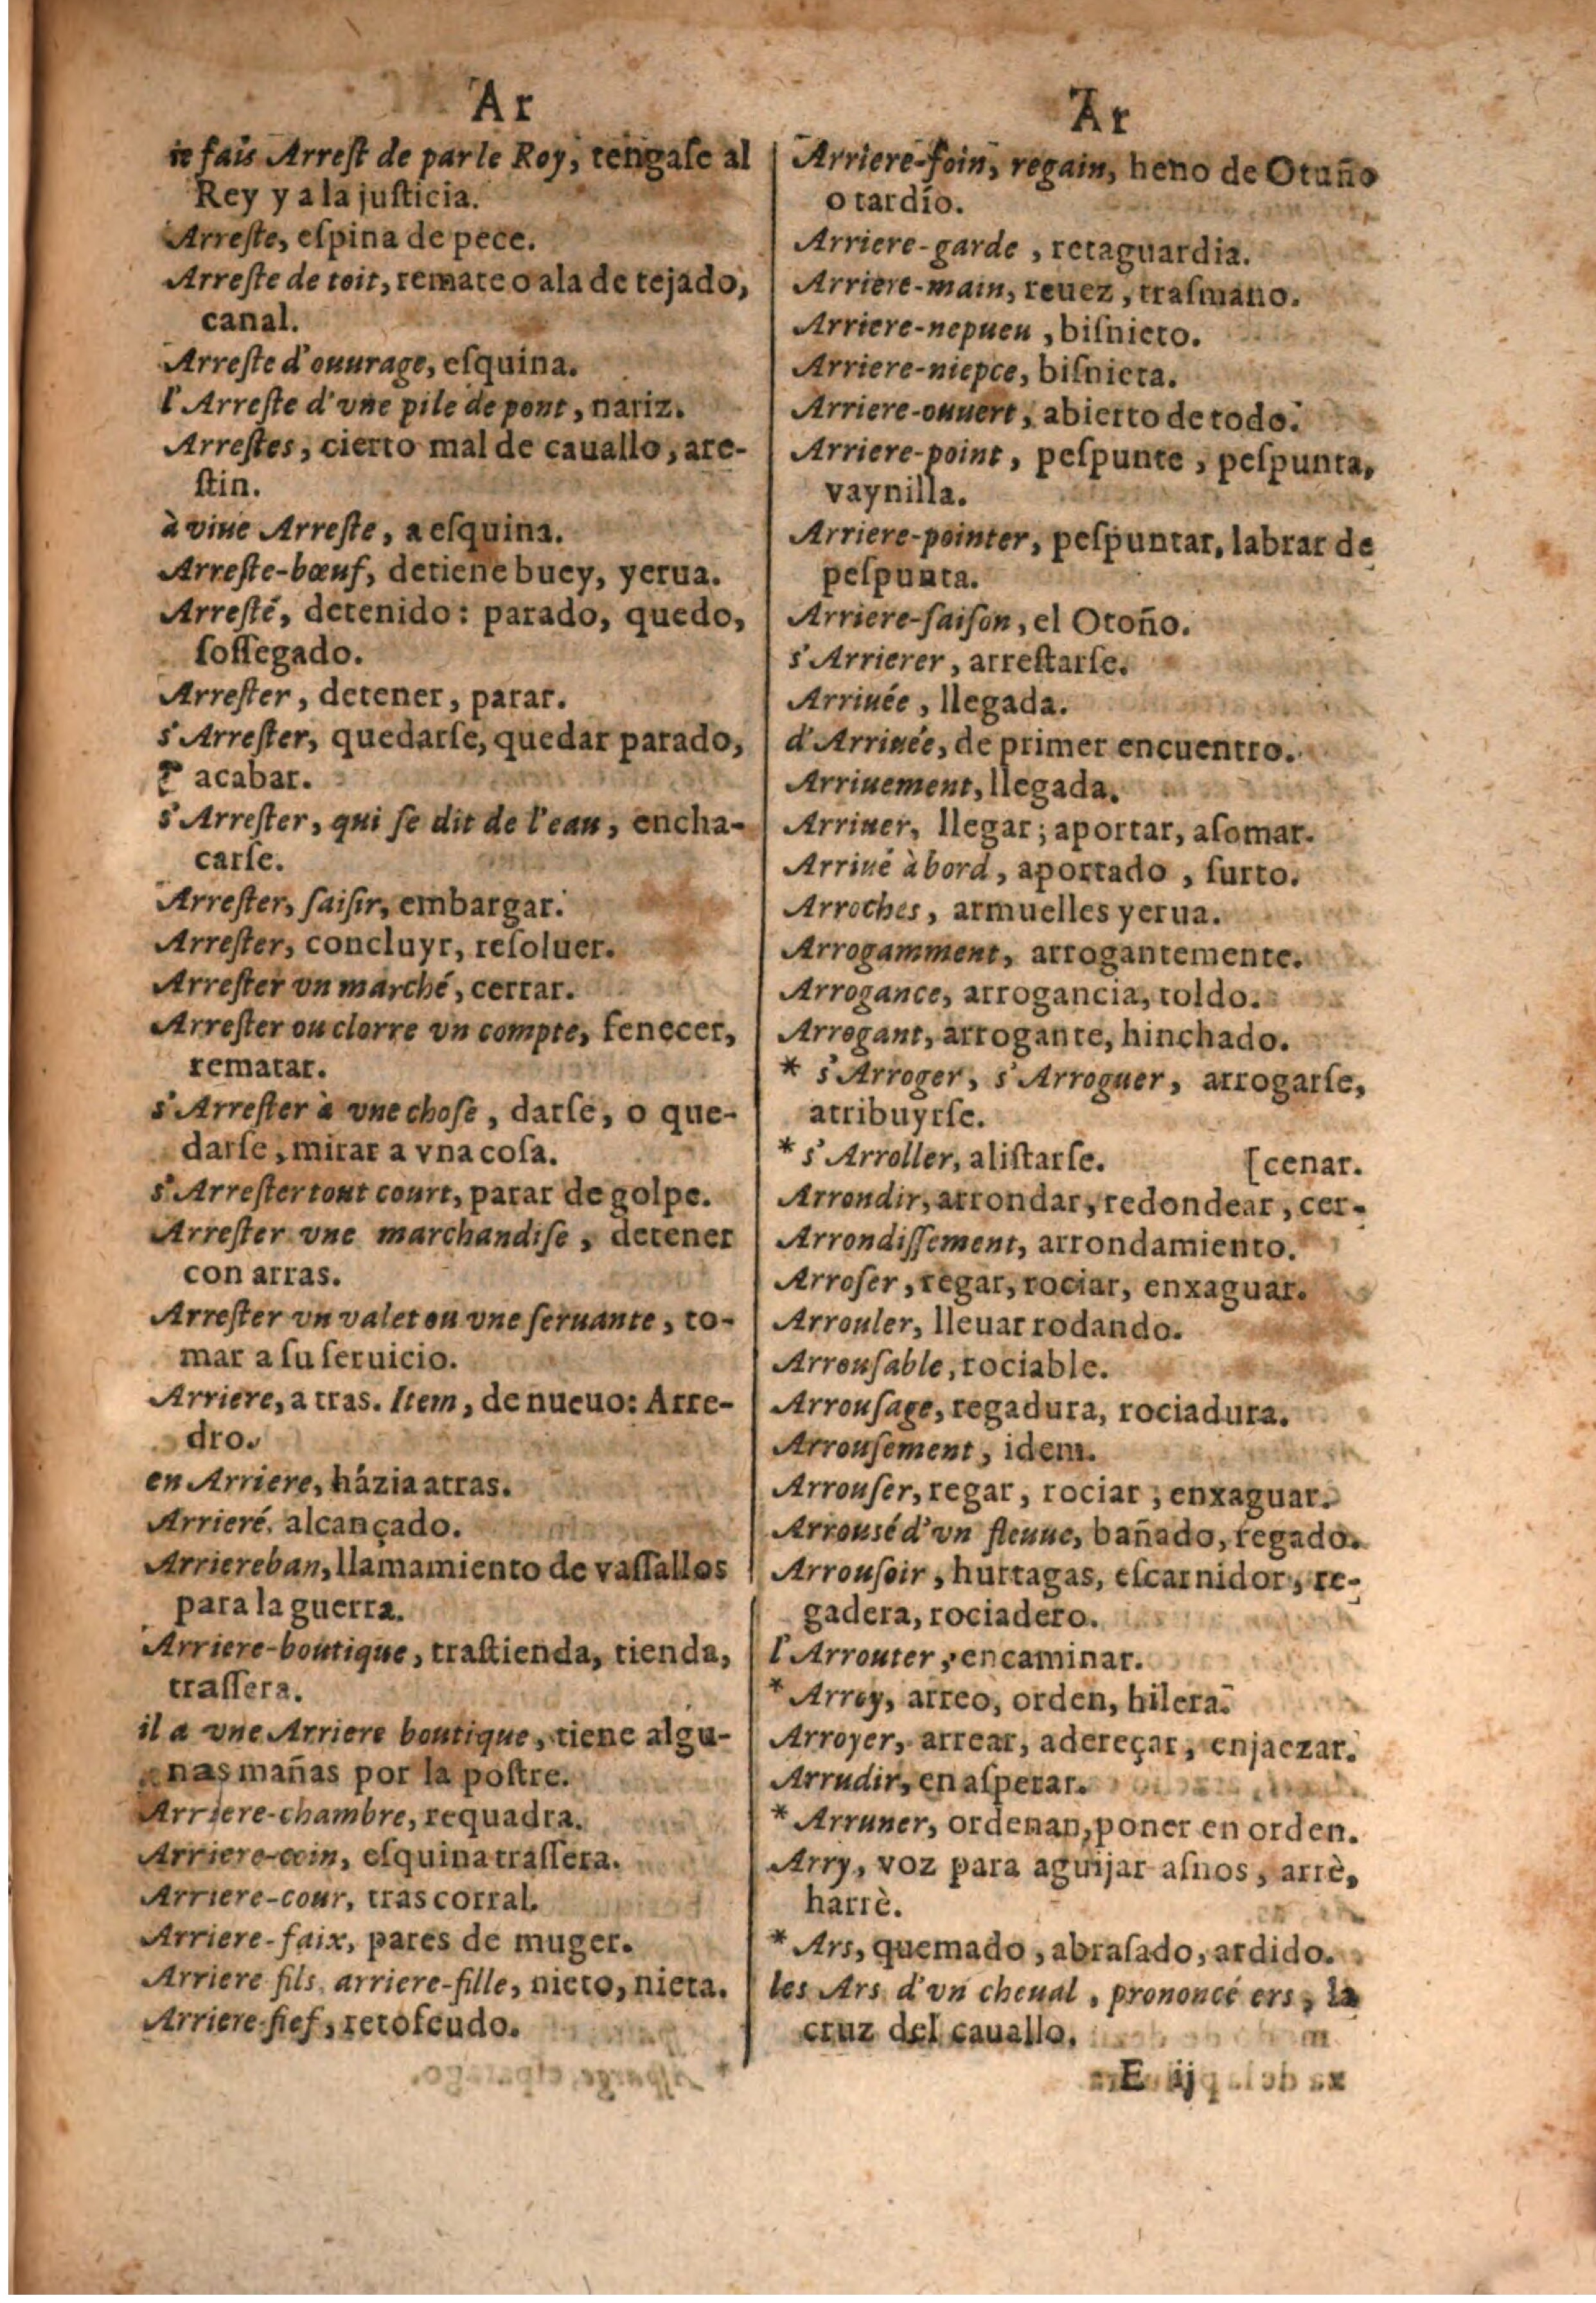 Ar
ie fais Arrest de par le Roy, tengase al
Rey y a la justicia.
Arreste, espina de pece.
Arreste de toit, remate o ala de tejado,
canal.
Arreste d'ouurage, esquina.
l'Arreste d'vne pile de pont, nariz.
Arrestes, cierto mal de cauallo, are-
stin.
à viue Arreste, a esquina.
Arreste-bœuf, detiene buey, yerua.
Arresté, detenido: parado, quedo,
sossegado.
Arrester, detener, parar.
s'Arrester, quedarse, quedar parado,
& acabar.
s'Arrester, qui se dit de l'eau, encha-
carse.
Arrester, saisir, embargar.
Arrester, concluyr, resoluer.
Arrester vn marché, cerrar.
Arrester ou clorre vn compte, feneçer,
rematar.
s'Arrester à vne chose, darse, o que-
darse, mirar a vna cosa.
s'Arrester tout court, parar de golpe.
Arrester vne marchandise, detener
con arras.
Arrester vn valet ou vne seruante, to-
mar a su seruicio.
Arriere, a tras. Item, de nueuo: Arre-
dro.
en Arriere, házia atras.
Arrieré, alcançado.
Arriereban, llamamiento de vassallos
para la guerra.
Arriere-boutique, trastienda, tienda,
trassera.
il a vne Arriere boutique, tiene algu-
nas mañas por la postre.
Arriere-chambre, requadra.
Arriere-coin, esquina trassera.
Arriere-cour, tras corral.
Arriere-faix, pares de muger.
Arriere fils, arriere-fille, nieto, nieta.
Arriere-fief, retofeudo.
Ar
Arriere-foin, regain, heno de Otuño
o tardío.
Arriere-garde, retaguardia.
Arriere-main, reuez, trasmano.
Arriere-nepueu, bisnieto.
Arriere-niepce, bisnieta.
Arriere-ouuert, abierto de todo.
Arriere-point, pespunte, pespunta,
vaynilla.
Arriere-pointer, pespuntar, labrar de
pespunta.
Arriere-saison, el Otoño.
s'Arrierer, arrestarse.
Arriuée, llegada.
d'Arriuée, de primer encuentro.
Arriuement, llegada.
Arriuer, llegar; aportar, asomar.
Arriué à bord, aportado, surto.
Arroches, armuelles yerua.
Arrogamment, arrogantemente.
Arrogance, arrogancia, toldo.
Arrogant, arrogante, hinchado.
* s'Arroger, s'Arroguer, arrogarse,
atribuyrse.
* s'Arroller, alistarse. [cenar.
Arrondir, arrondar, redondear, cer-
Arrondissement, arrondamiento.
Arroser, regar, rociar, enxaguar.
Arrouler, lleuar rodando.
Arrousable, rociable.
Arrousage, regadura, rociadura.
Arrousement, idem.
Arrouser, regar, rociar, enxaguar.
Arrousé d'vn fleuue, bañado, regado.
Arrousoir, hurtagas, escarnidor, re-
gadera, rociadero.
l'Arrouter, encaminar.
* Arroy, arreo, orden, hilera.
Arroyer, arrear, adereçar, enjaezar.
Arrudir, en asperar.
* Arruner, ordenan, poner en orden.
Arry, voz para aguijar asnos, arrè,
harrè.
* Ars, quemado, abrasado, ardido.
les Ars d'vn cheual, prononcé ers, la
cruz del cauallo.
E ij